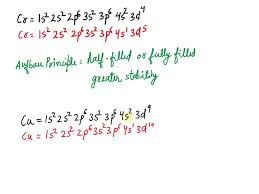 Cr = 1s² 2s² 2p⁶ 3s² 3p⁶ 4s² 3d⁴
Cr = 1s² 2s² 2p⁶ 3s² 3p⁶ 4s¹ 3d⁵
Aufbau Principle = half-filled or fully filled
greater stability
Cu = 1s² 2s² 2p⁶ 3s² 3p⁶ 4s² 3d⁹
Cu = 1s² 2s² 2p⁶ 3s² 3p⁶ 4s¹ 3d¹⁰